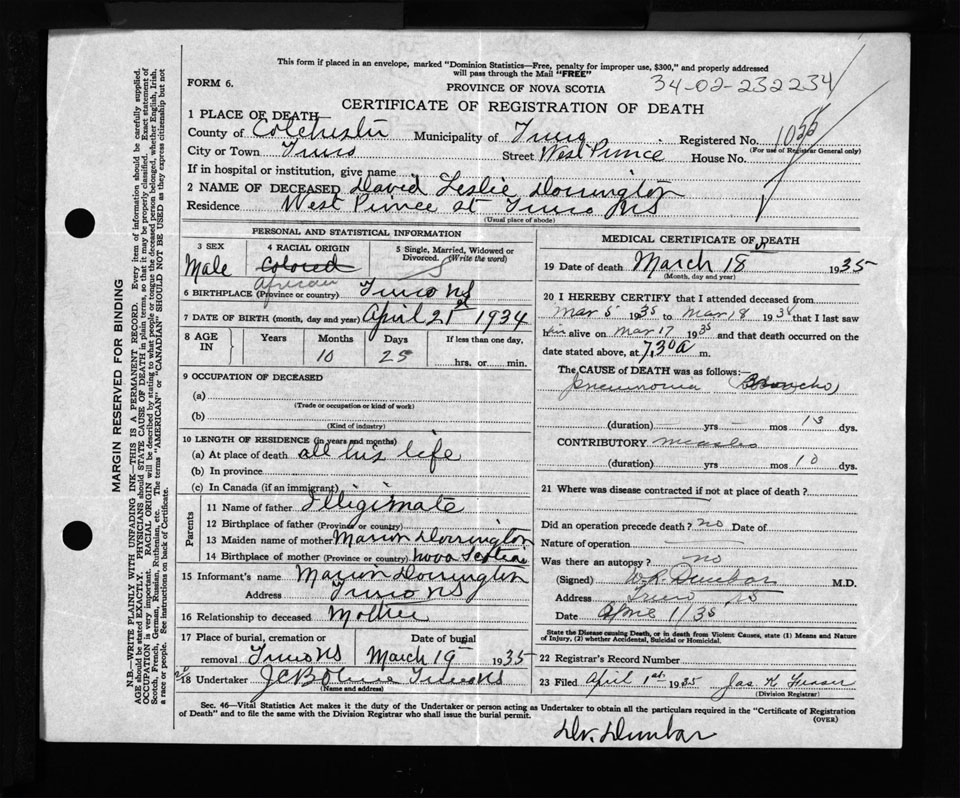 This form if placed in an envelope, marked "Dominion Statistics—Free, penalty for improper use, $300," and properly addressed
will pass through the Mail "FREE"
34-02-232234
FORM 6.
PROVINCE OF NOVA SCOTIA
CERTIFICATE OF REGISTRATION OF DEATH
1 PLACE OF DEATH
County of Colchester Municipality of Truro Registered No.
(For use of Registrar General only)
City or Town Truro Street West Prince House No.
If in hospital or institution, give name
2 NAME OF DECEASED David Leslie Dorrington
Residence West Prince St Truro NS
(Usual place of abode)
PERSONAL AND STATISTICAL INFORMATION
3 SEX Male
4 RACIAL ORIGIN Colored
African
5 Single, Married, Widowed or Divorced. (Write the word) S
6 BIRTHPLACE (Province or country) Truro NS
7 DATE OF BIRTH (month, day and year) April 21st 1934
8 AGE IN Years Months Days If less than one day,
10 25 hrs. or min.
9 OCCUPATION OF DECEASED
(a)
(Trade or occupation or kind of work)
(b)
(Kind of industry)
10 LENGTH OF RESIDENCE (in years and months)
(a) At place of death all his life
(b) In province
(c) In Canada (if an immigrant)
Parents
11 Name of father Illigimate
12 Birthplace of father (Province or country)
13 Maiden name of mother Marion Dorrington
14 Birthplace of mother (Province or country) Nova Scotia
15 Informant's name Marion Dorrington
Address Truro NS
16 Relationship to deceased Mother
17 Place of burial, cremation or removal Truro NS
Date of burial March 19 1935
18 Undertaker Truro NS
(Name and address)
MEDICAL CERTIFICATE OF DEATH
19 Date of death March 18 1935
(Month, day and year)
20 I HEREBY CERTIFY that I attended deceased from
Mar 5 1935 to Mar 18 1935 that I last saw
him alive on Mar 17 1935 and that death occurred on the
date stated above, at 7,30 a m.
The CAUSE of DEATH was as follows:
Pneumonia (Broncho)
(duration) yrs mos 13 dys.
CONTRIBUTORY measles
(duration) yrs mos 10 dys.
21 Where was disease contracted if not at place of death?
Did an operation precede death? no Date of
Nature of operation
Was there an autopsy? no
(Signed) W.R. Dunbar M.D.
Address Truro NS
Date April 1/35
State the Disease causing Death, or in death from Violent Causes, state (1) Means and Nature
of Injury, (2) whether Accidental, Suicidal or Homicidal.
22 Registrar's Record Number
23 Filed April 1st. 1935 Jas. K. Fraser
(Division Registrar)
Sec. 46—Vital Statistics Act makes it the duty of the Undertaker or person acting as Undertaker to obtain all the particulars required in the "Certificate of Registration
of Death" and to file the same with the Division Registrar who shall issue the burial permit.
(OVER)
Dr. Dunbar
MARGIN RESERVED FOR BINDING
N.B.—WRITE PLAINLY WITH UNFADING INK—THIS IS A PERMANENT RECORD. Every item of information should be carefully supplied.
AGE should be stated EXACTLY. PHYSICIANS should STATE CAUSE OF DEATH in plain terms, so that it may be properly classified. Exact statement of
OCCUPATION is very important. RACIAL ORIGIN will be described by stating to what people or tongue the deceased person belonged, whether English, Irish,
Scotch, French, German, Russian, Ruthenian, etc. The terms "AMERICAN" or "CANADIAN" SHOULD NOT BE USED as they express citizenship but not
a race or people. See instructions on back of Certificate.